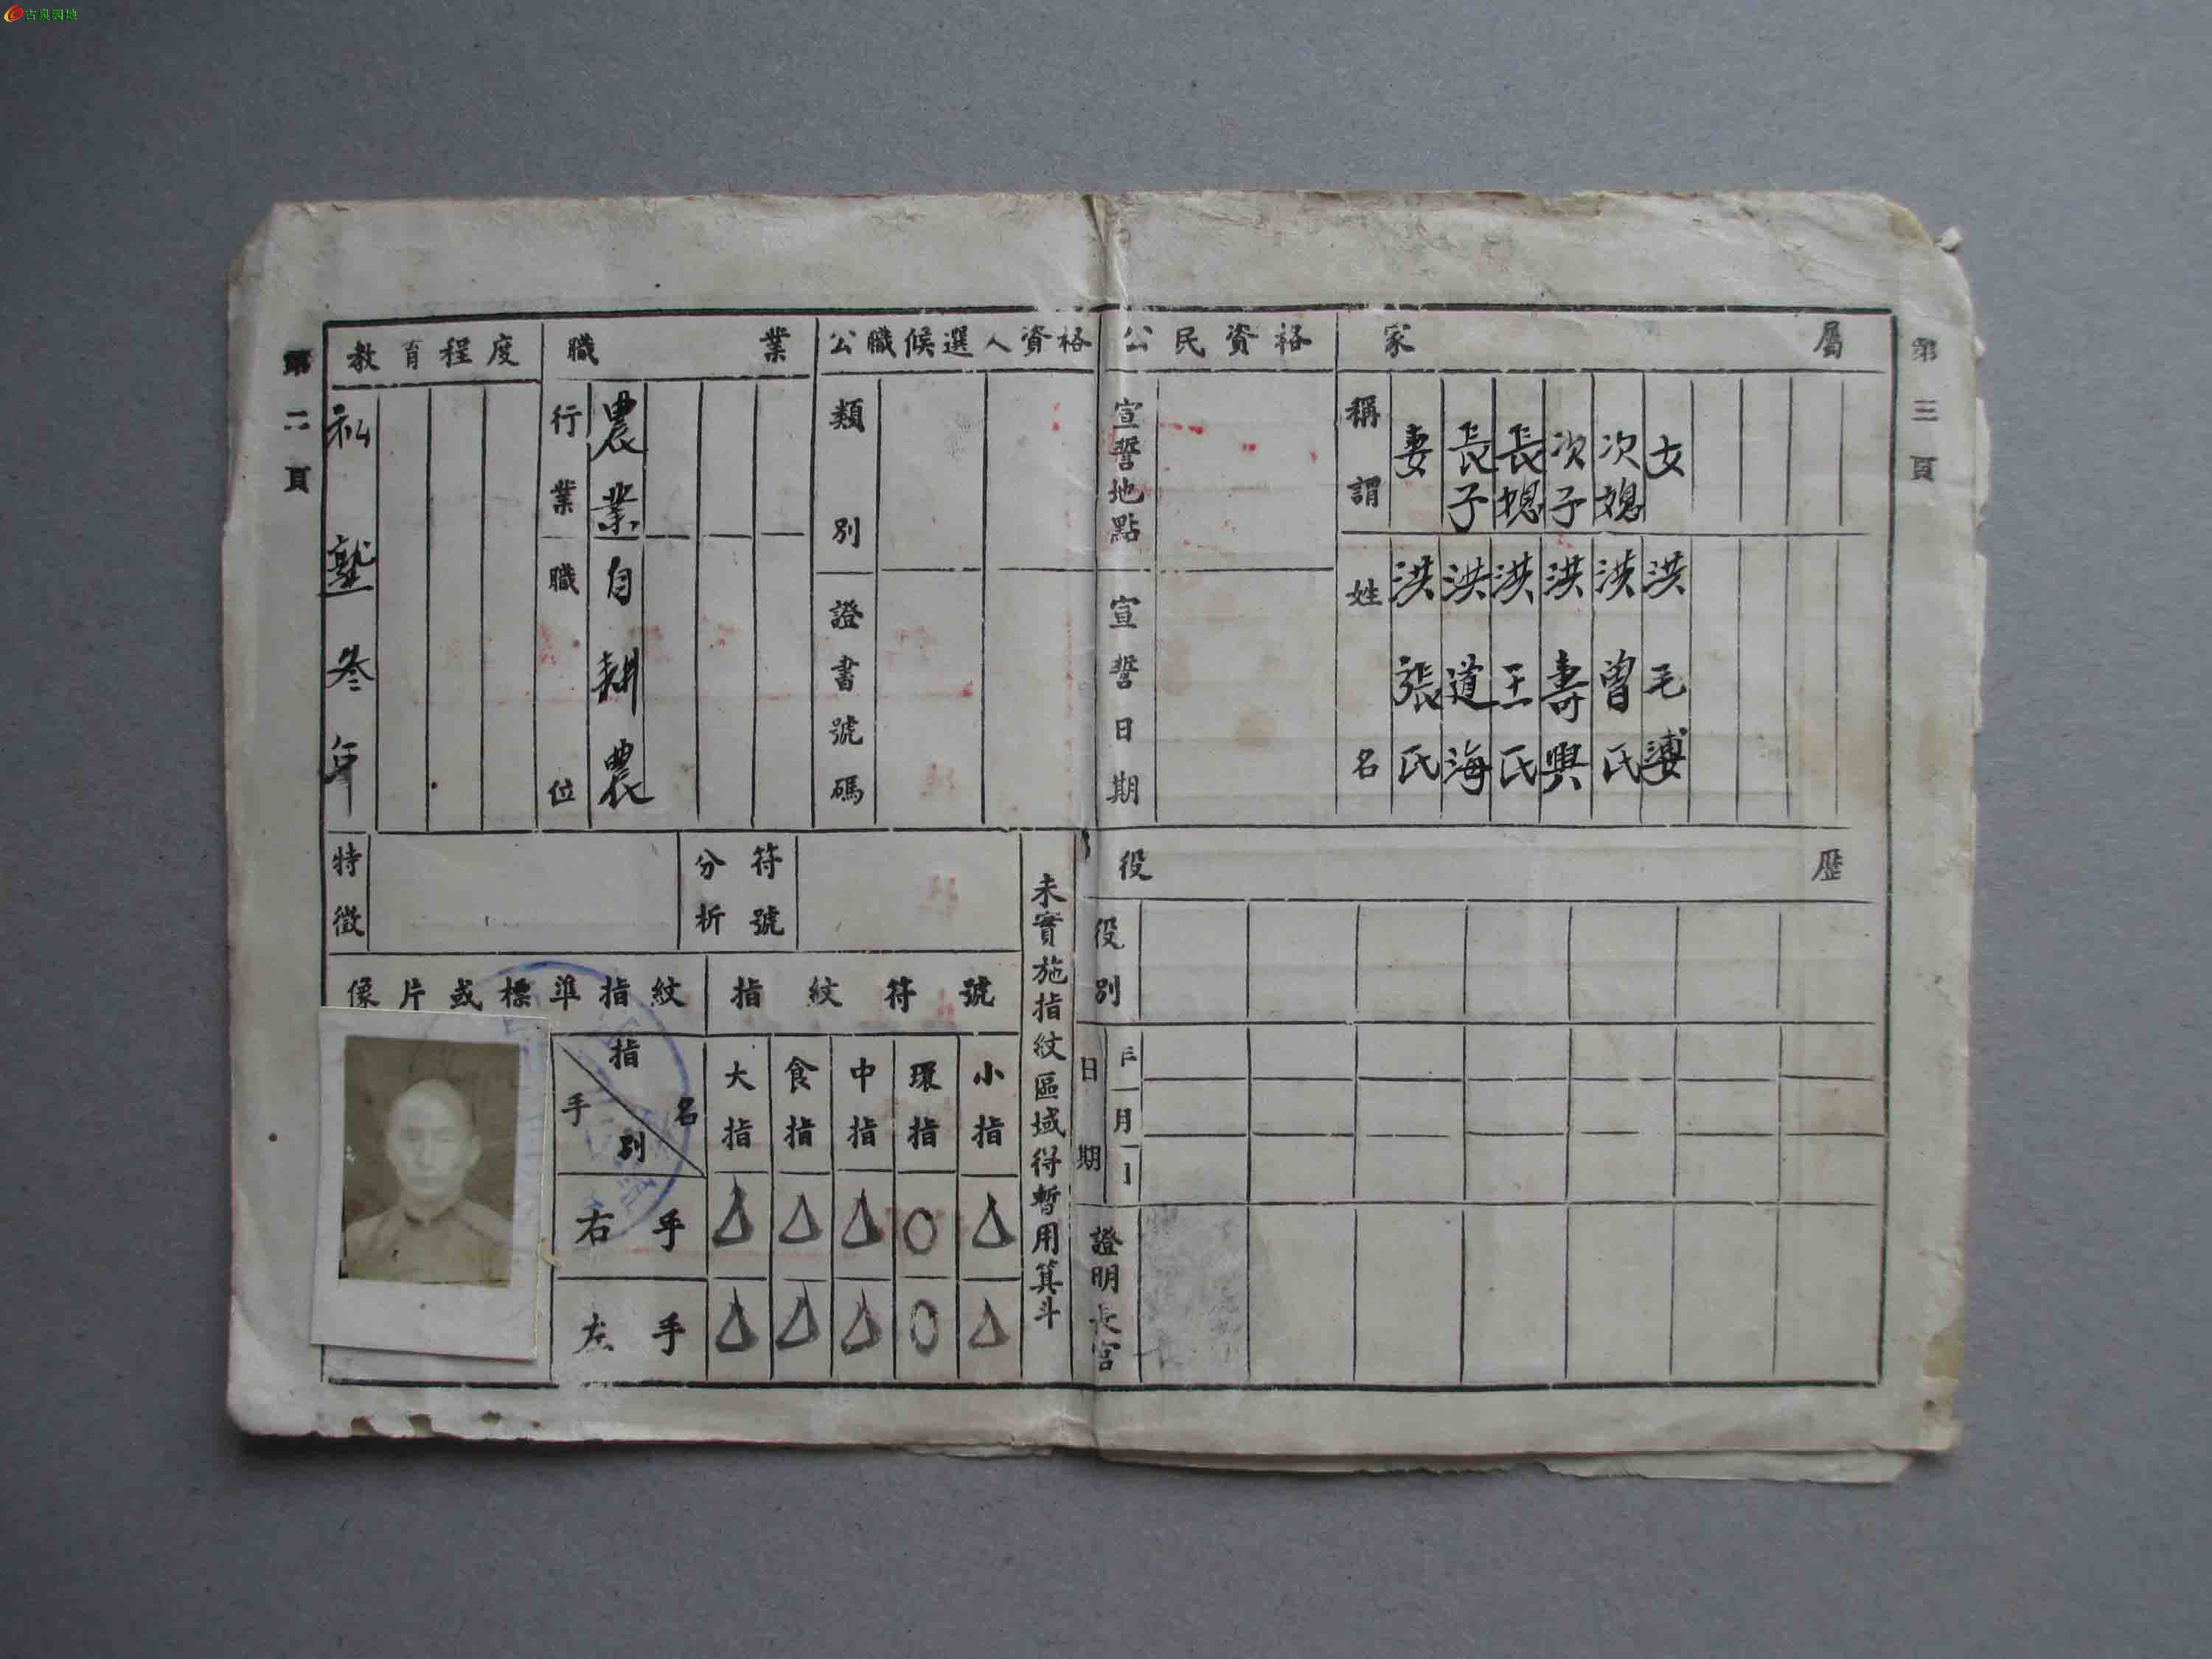 古泉园地
第二頁
教育程度
私塾叁年
職業
行業
農業
職位
自耕農
公職候選人資格
類別
證書號碼
公民資格
宣誓地點
宣誓日期
家屬
稱謂
妻
長子
長媳
次子
次媳
女
姓名
洪張氏
洪道海
洪王氏
洪壽興
洪曾氏
洪毛
第三頁
特徵
分析
符號
像片或標準指紋
指紋符號
指名
手別
大指
食指
中指
環指
小指
右手
△
△
△
○
△
左手
△
△
△
○
△
未實施指紋區域得暫用箕斗
役歷
役別
日期
年
月
日
證明長官